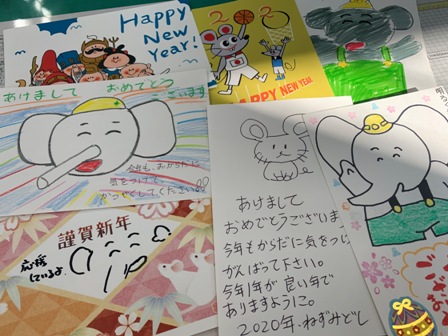 HAPPY
NEW
YEAR!
2 2
HAPPY NEW YEAR
あけまして
おめでとう
ございます
今年も、おからだに
気をつけて、
かつやくしてください
謹賀新年
応援
しているよ
あけまして
おめでとうございま
今年もからだに気をつけ
がんばって下さい。
今年1年が 良い年で
ありますように。
2020年・ねずみどし